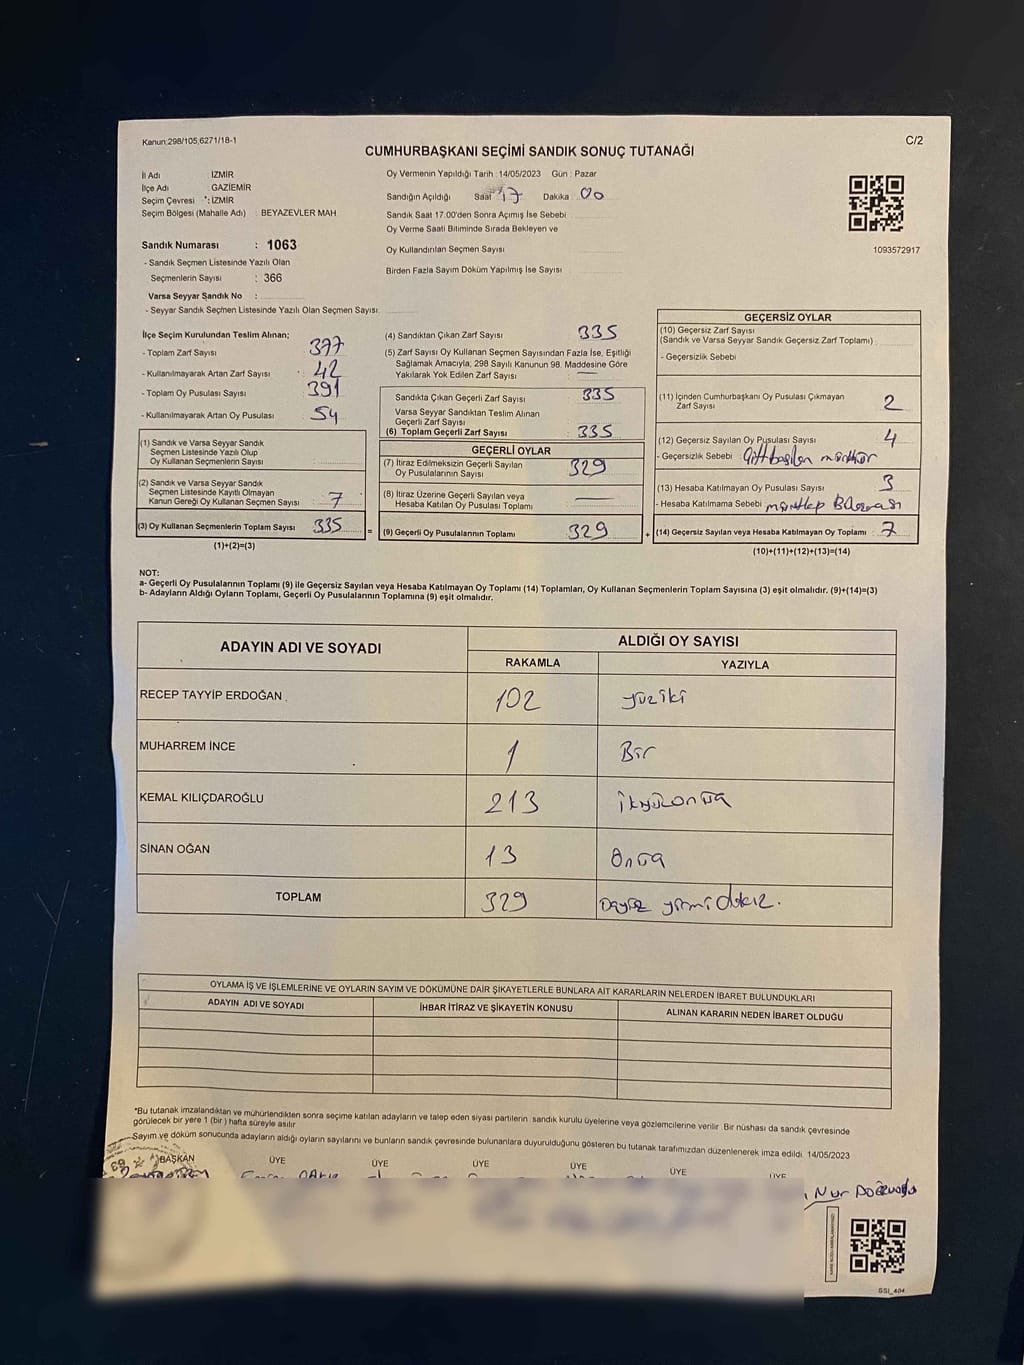 Kanun:298/105,6271/18-1
C/2
CUMHURBAŞKANI SEÇİMİ SANDIK SONUÇ TUTANAĞI
İl Adı : İZMİR
İlçe Adı : GAZİEMİR
Seçim Çevresi : İZMİR
Seçim Bölgesi (Mahalle Adı) : BEYAZEVLER MAH
Oy Vermenin Yapıldığı Tarih : 14/05/2023 Gün : Pazar
Sandığın Açıldığı Saat 17 Dakika 00
Sandık Saat 17.00'den Sonra Açımış İse Sebebi
Oy Verme Saati Bitiminde Sırada Bekleyen ve
Oy Kullandırılan Seçmen Sayısı
Birden Fazla Sayım Döküm Yapılmış İse Sayısı
1093572917
Sandık Numarası : 1063
- Sandık Seçmen Listesinde Yazılı Olan
Seçmenlerin Sayısı : 366
Varsa Seyyar Sandık No :
- Seyyar Sandık Seçmen Listesinde Yazılı Olan Seçmen Sayısı:
İlçe Seçim Kurulundan Teslim Alınan;
- Toplam Zarf Sayısı 377
- Kullanılmayarak Artan Zarf Sayısı : 42
- Toplam Oy Pusulası Sayısı 391
- Kullanılmayarak Artan Oy Pusulası 54
(1) Sandık ve Varsa Seyyar Sandık
Seçmen Listesinde Yazılı Olup
Oy Kullanan Seçmenlerin Sayısı
(2) Sandık ve Varsa Seyyar Sandık
Seçmen Listesinde Kayıtlı Olmayan
Kanun Gereği Oy Kullanan Seçmen Sayısı 7
(3) Oy Kullanan Seçmenlerin Toplam Sayısı 335
(1)+(2)=(3)
(4) Sandıktan Çıkan Zarf Sayısı 335
(5) Zarf Sayısı Oy Kullanan Seçmen Sayısından Fazla İse, Eşitliği
Sağlamak Amacıyla, 298 Sayılı Kanunun 98. Maddesine Göre
Yakılarak Yok Edilen Zarf Sayısı —
Sandıkta Çıkan Geçerli Zarf Sayısı 335
Varsa Seyyar Sandıktan Teslim Alınan
Geçerli Zarf Sayısı
(6) Toplam Geçerli Zarf Sayısı 335
GEÇERLİ OYLAR
(7) İtiraz Edilmeksizin Geçerli Sayılan
Oy Pusulalarının Sayısı 329
(8) İtiraz Üzerine Geçerli Sayılan veya
Hesaba Katılan Oy Pusulası Toplamı —
= (9) Geçerli Oy Pusulalarının Toplamı 329
GEÇERSİZ OYLAR
(10) Geçersiz Zarf Sayısı
(Sandık ve Varsa Seyyar Sandık Geçersiz Zarf Toplamı)
- Geçersizlik Sebebi
(11) İçinden Cumhurbaşkanı Oy Pusulası Çıkmayan
Zarf Sayısı 2
(12) Geçersiz Sayılan Oy Pusulası Sayısı 4
- Geçersizlik Sebebi
(13) Hesaba Katılmayan Oy Pusulası Sayısı 3
- Hesaba Katılmama Sebebi
+ (14) Geçersiz Sayılan veya Hesaba Katılmayan Oy Toplamı : 7
(10)+(11)+(12)+(13)=(14)
NOT:
a- Geçerli Oy Pusulalarının Toplamı (9) ile Geçersiz Sayılan veya Hesaba Katılmayan Oy Toplamı (14) Toplamları, Oy Kullanan Seçmenlerin Toplam Sayısına (3) eşit olmalıdır. (9)+(14)=(3)
b- Adayların Aldığı Oyların Toplamı, Geçerli Oy Pusulalarının Toplamına (9) eşit olmalıdır.
ADAYIN ADI VE SOYADI
ALDIĞI OY SAYISI
RAKAMLA YAZIYLA
RECEP TAYYİP ERDOĞAN 102 yüziki
MUHARREM İNCE 1 Bir
KEMAL KILIÇDAROĞLU 213
SİNAN OĞAN 13
TOPLAM 329
OYLAMA İŞ VE İŞLEMLERİNE VE OYLARIN SAYIM VE DÖKÜMÜNE DAİR ŞİKAYETLERLE BUNLARA AİT KARARLARIN NELERDEN İBARET BULUNDUKLARI
ADAYIN ADI VE SOYADI İHBAR İTİRAZ VE ŞİKAYETİN KONUSU ALINAN KARARIN NEDEN İBARET OLDUĞU
*Bu tutanak imzalandıktan ve mühürlendikten sonra seçime katılan adayların ve talep eden siyasi partilerin sandık kurulu üyelerine veya gözlemcilerine verilir. Bir nüshası da sandık çevresinde
görülecek bir yere 1 (bir) hafta süreyle asılır
Sayım ve döküm sonucunda adayların aldığı oyların sayılarını ve bunların sandık çevresinde bulunanlara duyurulduğunu gösteren bu tutanak tarafımızdan düzenlenerek imza edildi. 14/05/2023
BAŞKAN ÜYE ÜYE ÜYE ÜYE ÜYE ÜYE
Nur
SSİ_404